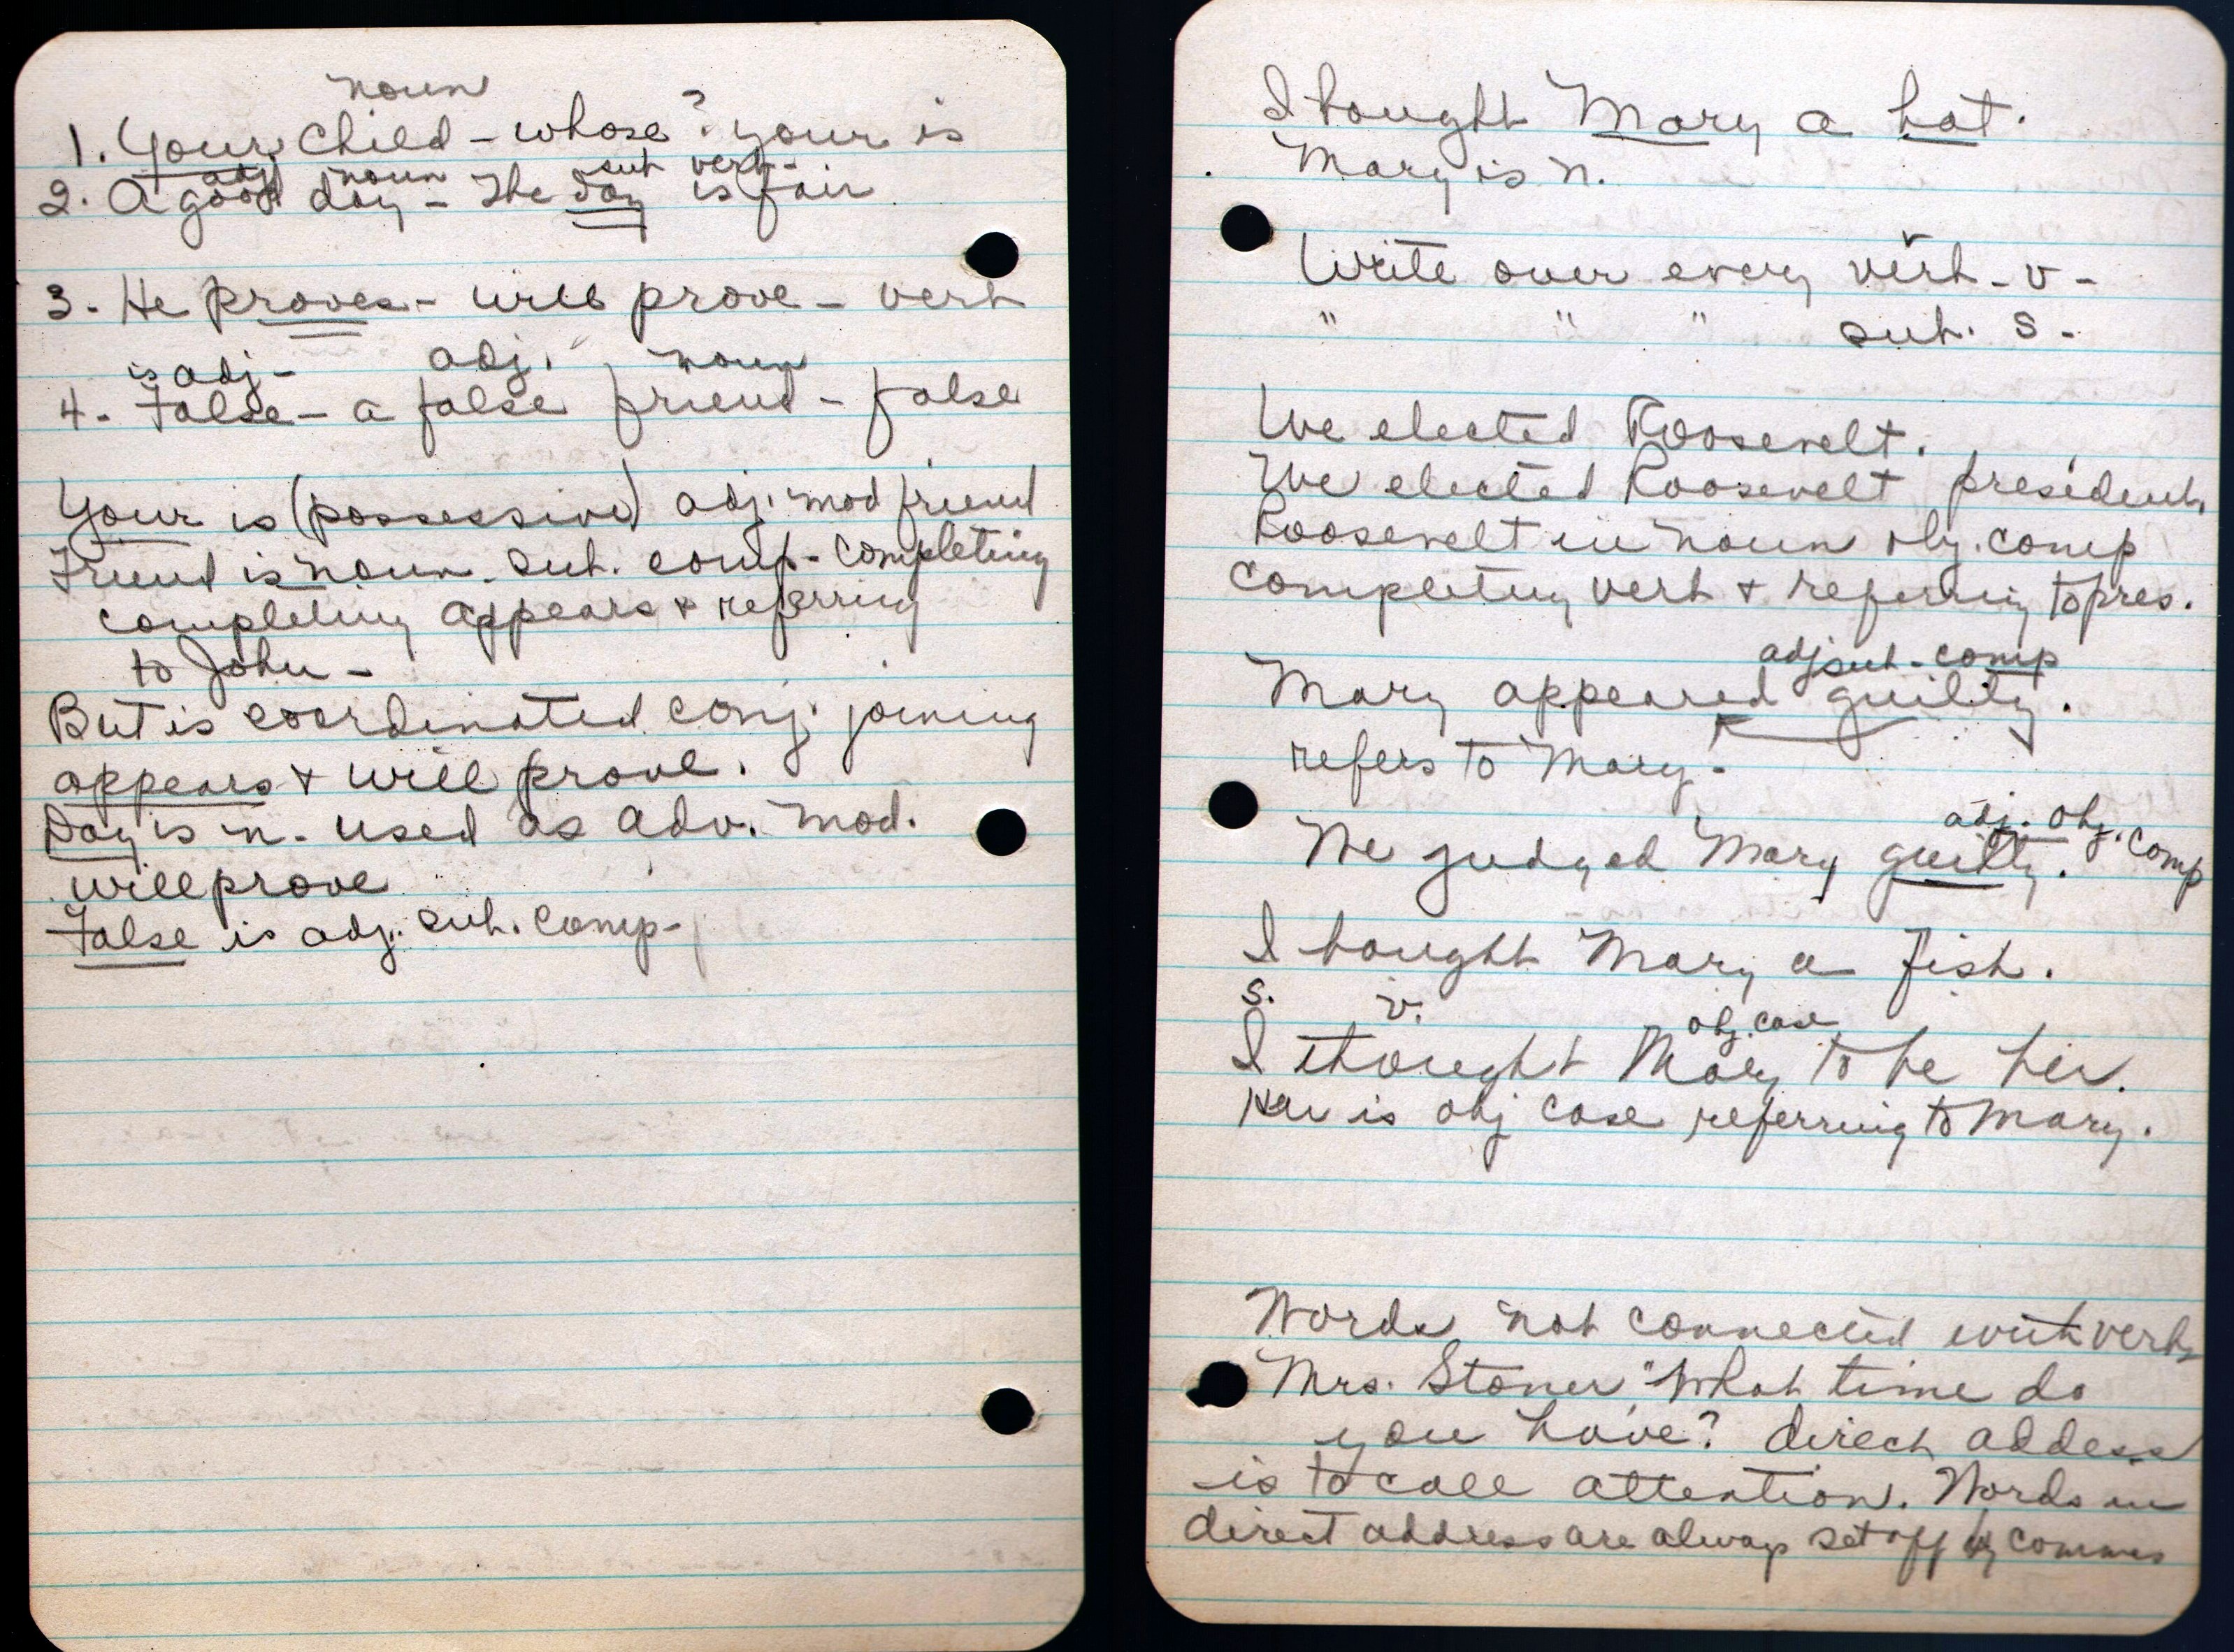 noun
1. Your child - whose? your is
adj noun sub verb -
2. A good day - The day is fair
3. He proves - will prove - verb
is adj - adj. noun
4. False - a false friend - false
Your is (possessive) adj. mod friend
Friend is noun. Sub. comp - completing
completing appears & referring
to John -
But is coordinated conj. joining
appears + will prove.
Day is n. used as adv. mod.
will prove
False is adj. sub. comp -
I bought Mary a hat.
Mary is n.
v
Write over every verb - v -
" " " sub. S -
We elected Roosevelt.
We elected Roosevelt president.
Roosevelt in noun obj. comp
completing verb + referring to pres.
adj sub - comp
Mary appeared guilty.
refers to Mary -
adj. obj. comp
We judged Mary guilty.
I bought Mary a fish.
S. v. obj. case
I thought Mary to be her.
Her is obj case referring to Mary.
Words not connected with verbs
Mrs. Stoner, "What time do
you have? direct addess
is to call attention. Words in
direct address are always set off by commas